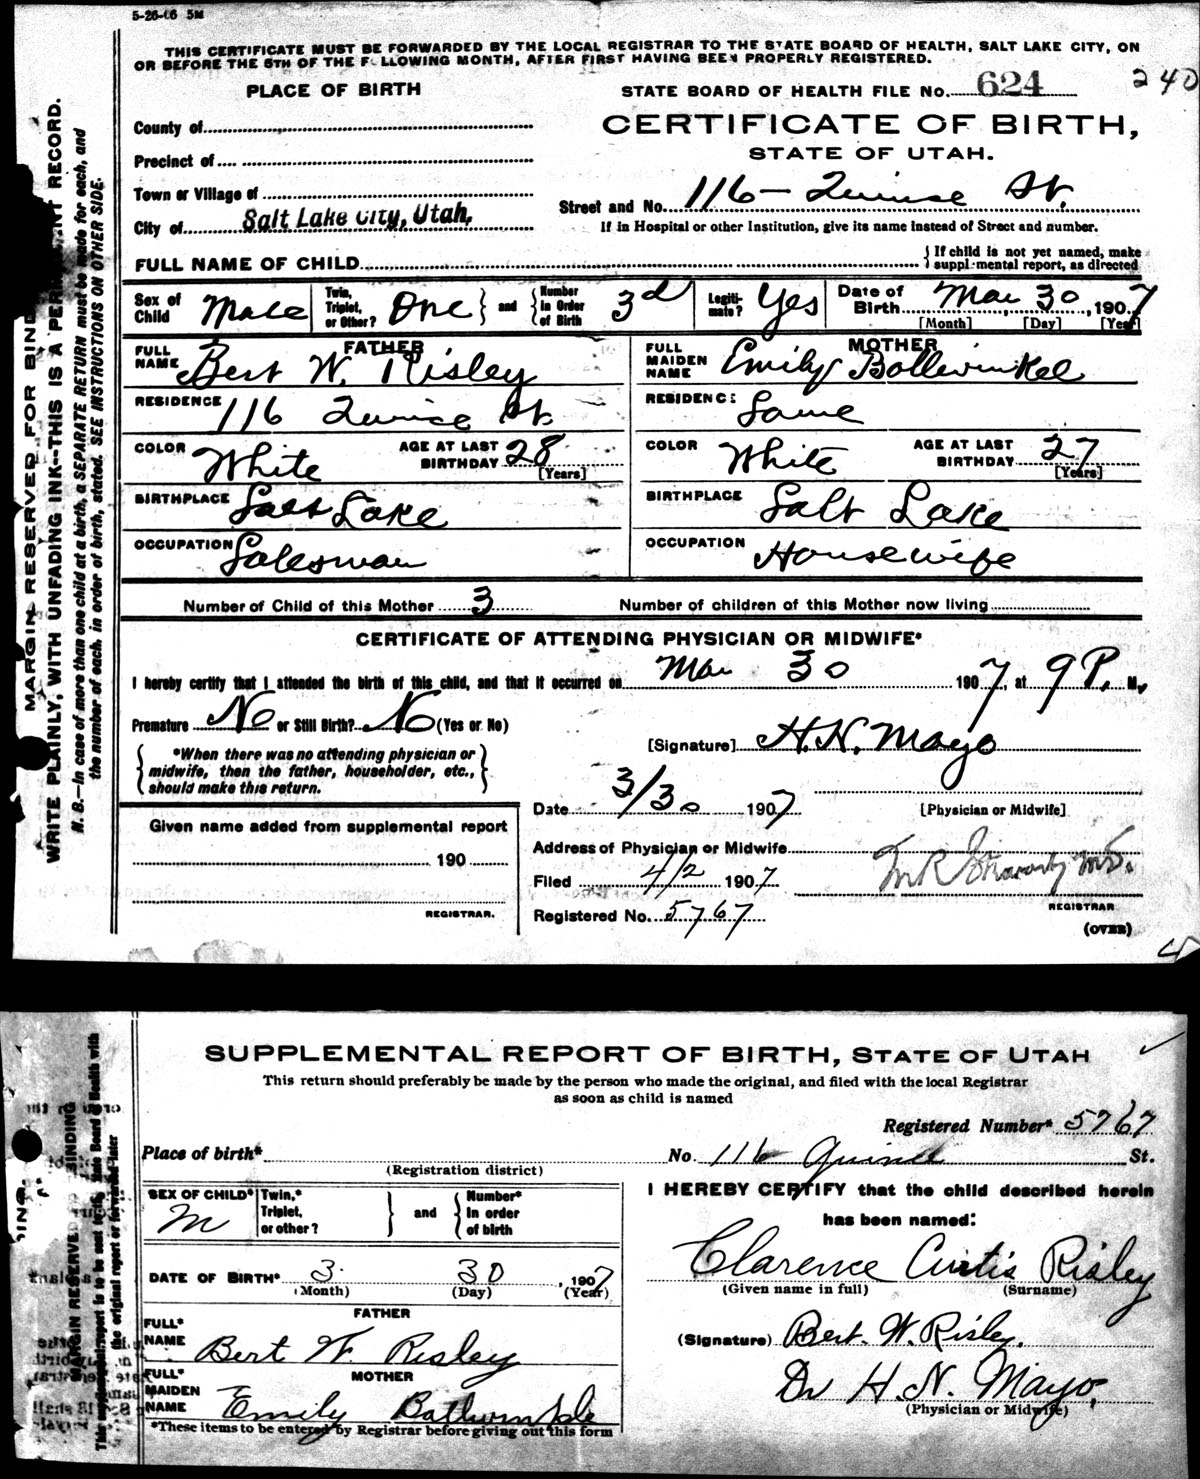 5-26-06 5M
THIS CERTIFICATE MUST BE FORWARDED BY THE LOCAL REGISTRAR TO THE STATE BOARD OF HEALTH, SALT LAKE CITY, ON
OR BEFORE THE 5TH OF THE FOLLOWING MONTH, AFTER FIRST HAVING BEEN PROPERLY REGISTERED.
240
PLACE OF BIRTH
STATE BOARD OF HEALTH FILE No. 624
County of
CERTIFICATE OF BIRTH,
Precinct of
STATE OF UTAH.
Town or Village of
Street and No. 116 – Quince St.
City of Salt Lake City, Utah,
If in Hospital or other Institution, give its name instead of Street and number.
FULL NAME OF CHILD
If child is not yet named, make
supplemental report, as directed
Sex of Child Male
Twin, Triplet, or Other? One
and
Number in Order of Birth 3d
Legitimate? Yes
Date of Birth Mar 30, 1907
[Month] [Day] [Year]
FATHER
FULL NAME Bert W. Risley
MOTHER
FULL MAIDEN NAME Emily Bollwinkel
RESIDENCE 116 Quince St.
RESIDENCE Same
COLOR White
AGE AT LAST BIRTHDAY 28 [Years]
COLOR White
AGE AT LAST BIRTHDAY 27 [Years]
BIRTHPLACE Salt Lake
BIRTHPLACE Salt Lake
OCCUPATION Salesman
OCCUPATION Housewife
Number of Child of this Mother 3
Number of children of this Mother now living
CERTIFICATE OF ATTENDING PHYSICIAN OR MIDWIFE*
I hereby certify that I attended the birth of this child, and that it occurred on Mar 30 1907, at 9 P. M.
Premature No or Still Birth? No (Yes or No)
[Signature] H.N. Mayo
*When there was no attending physician or
midwife, then the father, householder, etc.,
should make this return.
Date 3/30 1907
[Physician or Midwife]
Given name added from supplemental report
190
REGISTRAR.
Address of Physician or Midwife
Filed 4/2 1907
Registered No. 5767
REGISTRAR
(OVER)
MARGIN RESERVED FOR BINDING
WRITE PLAINLY, WITH UNFADING INK--THIS IS A PERMANENT RECORD.
N. B.—In case of more than one child at a birth, a SEPARATE RETURN must be made for each, and
the number of each, in order of birth, stated. SEE INSTRUCTIONS ON OTHER SIDE.
SUPPLEMENTAL REPORT OF BIRTH, STATE OF UTAH
This return should preferably be made by the person who made the original, and filed with the local Registrar
as soon as child is named
Registered Number* 5767
Place of birth*
No. 116 Quince St.
(Registration district)
SEX OF CHILD* M
Twin,* Triplet, or other?
and
Number* in order of birth
I HEREBY CERTIFY that the child described herein
has been named:
Clarence Curtis Risley
(Given name in full) (Surname)
DATE OF BIRTH* 3 30, 1907
(Month) (Day) (Year)
FATHER
FULL* NAME Bert W. Risley
(Signature) Bert. W. Risley.
MOTHER
FULL* MAIDEN NAME Emily
Dr H. N. Mayo.
(Physician or Midwife)
*These items to be entered by Registrar before giving out this form
MARGIN RESERVED BINDING